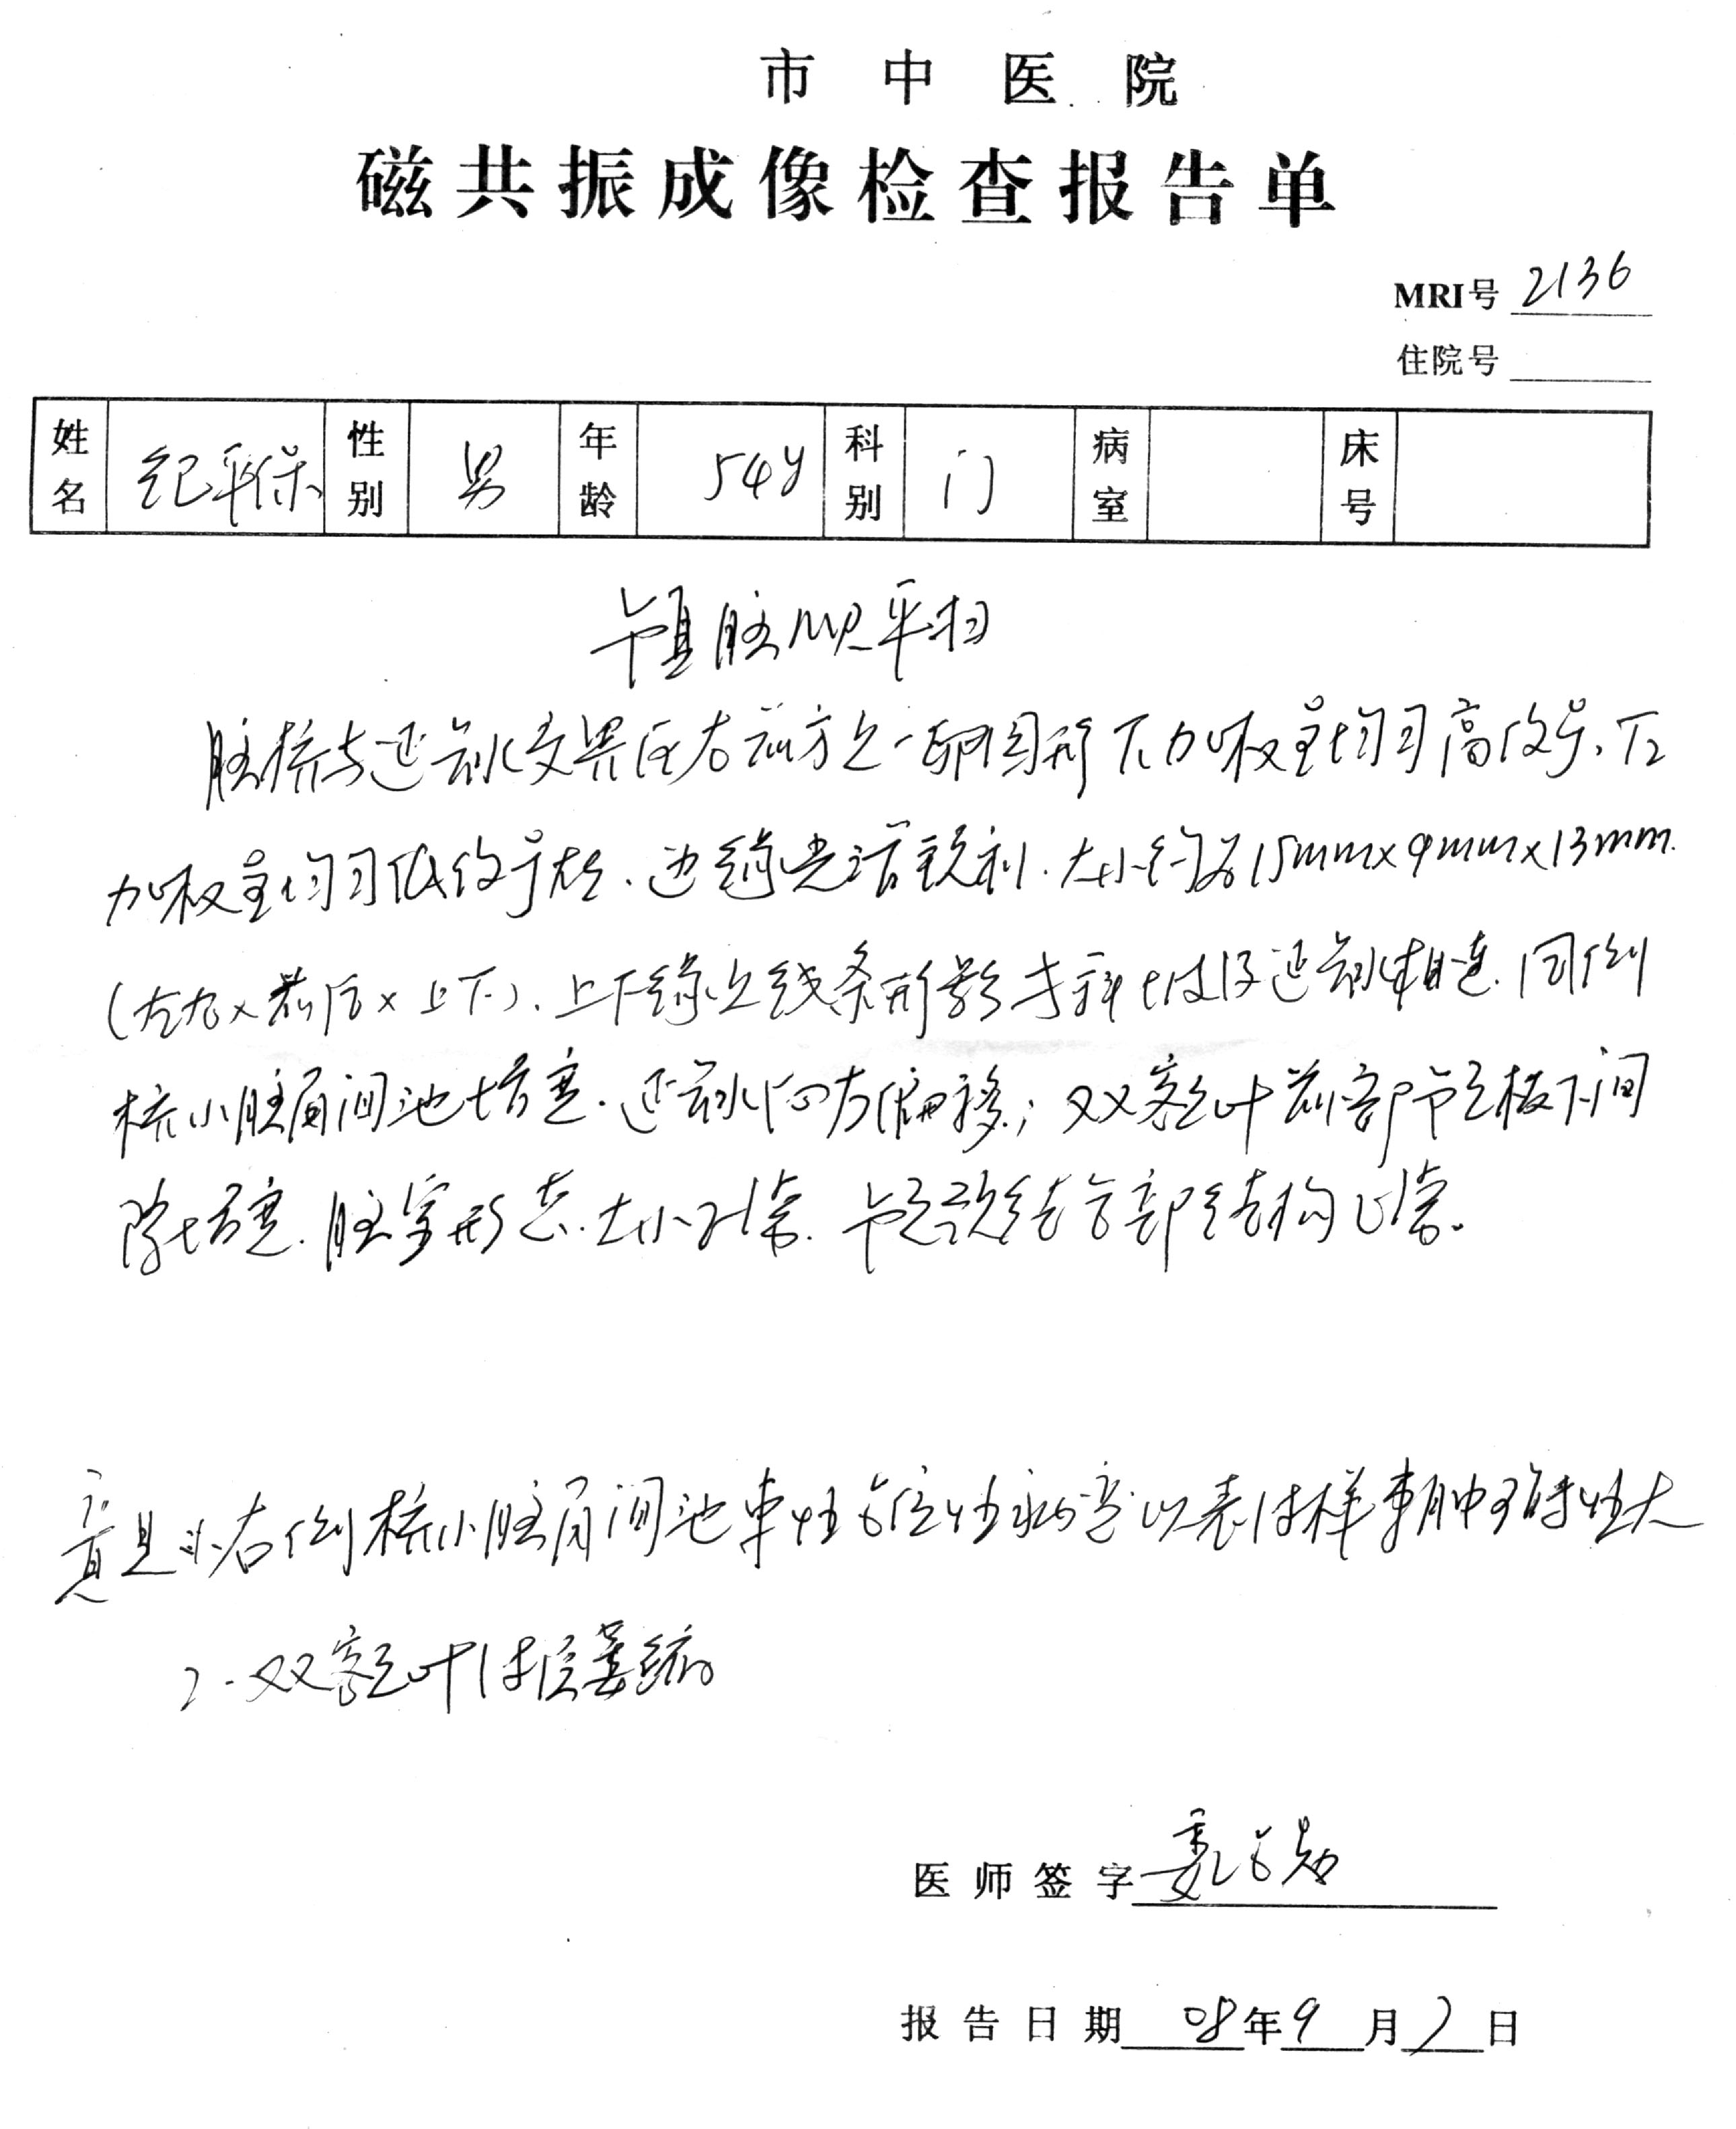 市中医院
磁共振成像检查报告单
MRI号 2136
住院号
姓名 纪平保 性别 男 年龄 54y 科别 门 病室 床号
颅脑MR平扫
脑桥与延髓交界区右前方见一卵圆形T1加权呈均匀高信号、T2
加权呈均匀低信号灶、边缘光滑锐利.大小约为15mm×9mm×13mm.
(左右×前后×上下).上下缘见线条形影与斜坡及延髓相连.同侧
桥小脑角间池增宽.延髓向左偏移;双额叶前部颅板下间
隙增宽.脑室形态.大小正常.颅颈结合部结构正常。
意见:1.右侧桥小脑角间池单性占位性病变以表皮样囊肿可能性大
2.双额叶皮层萎缩
医师签字
报告日期 08年9月2日